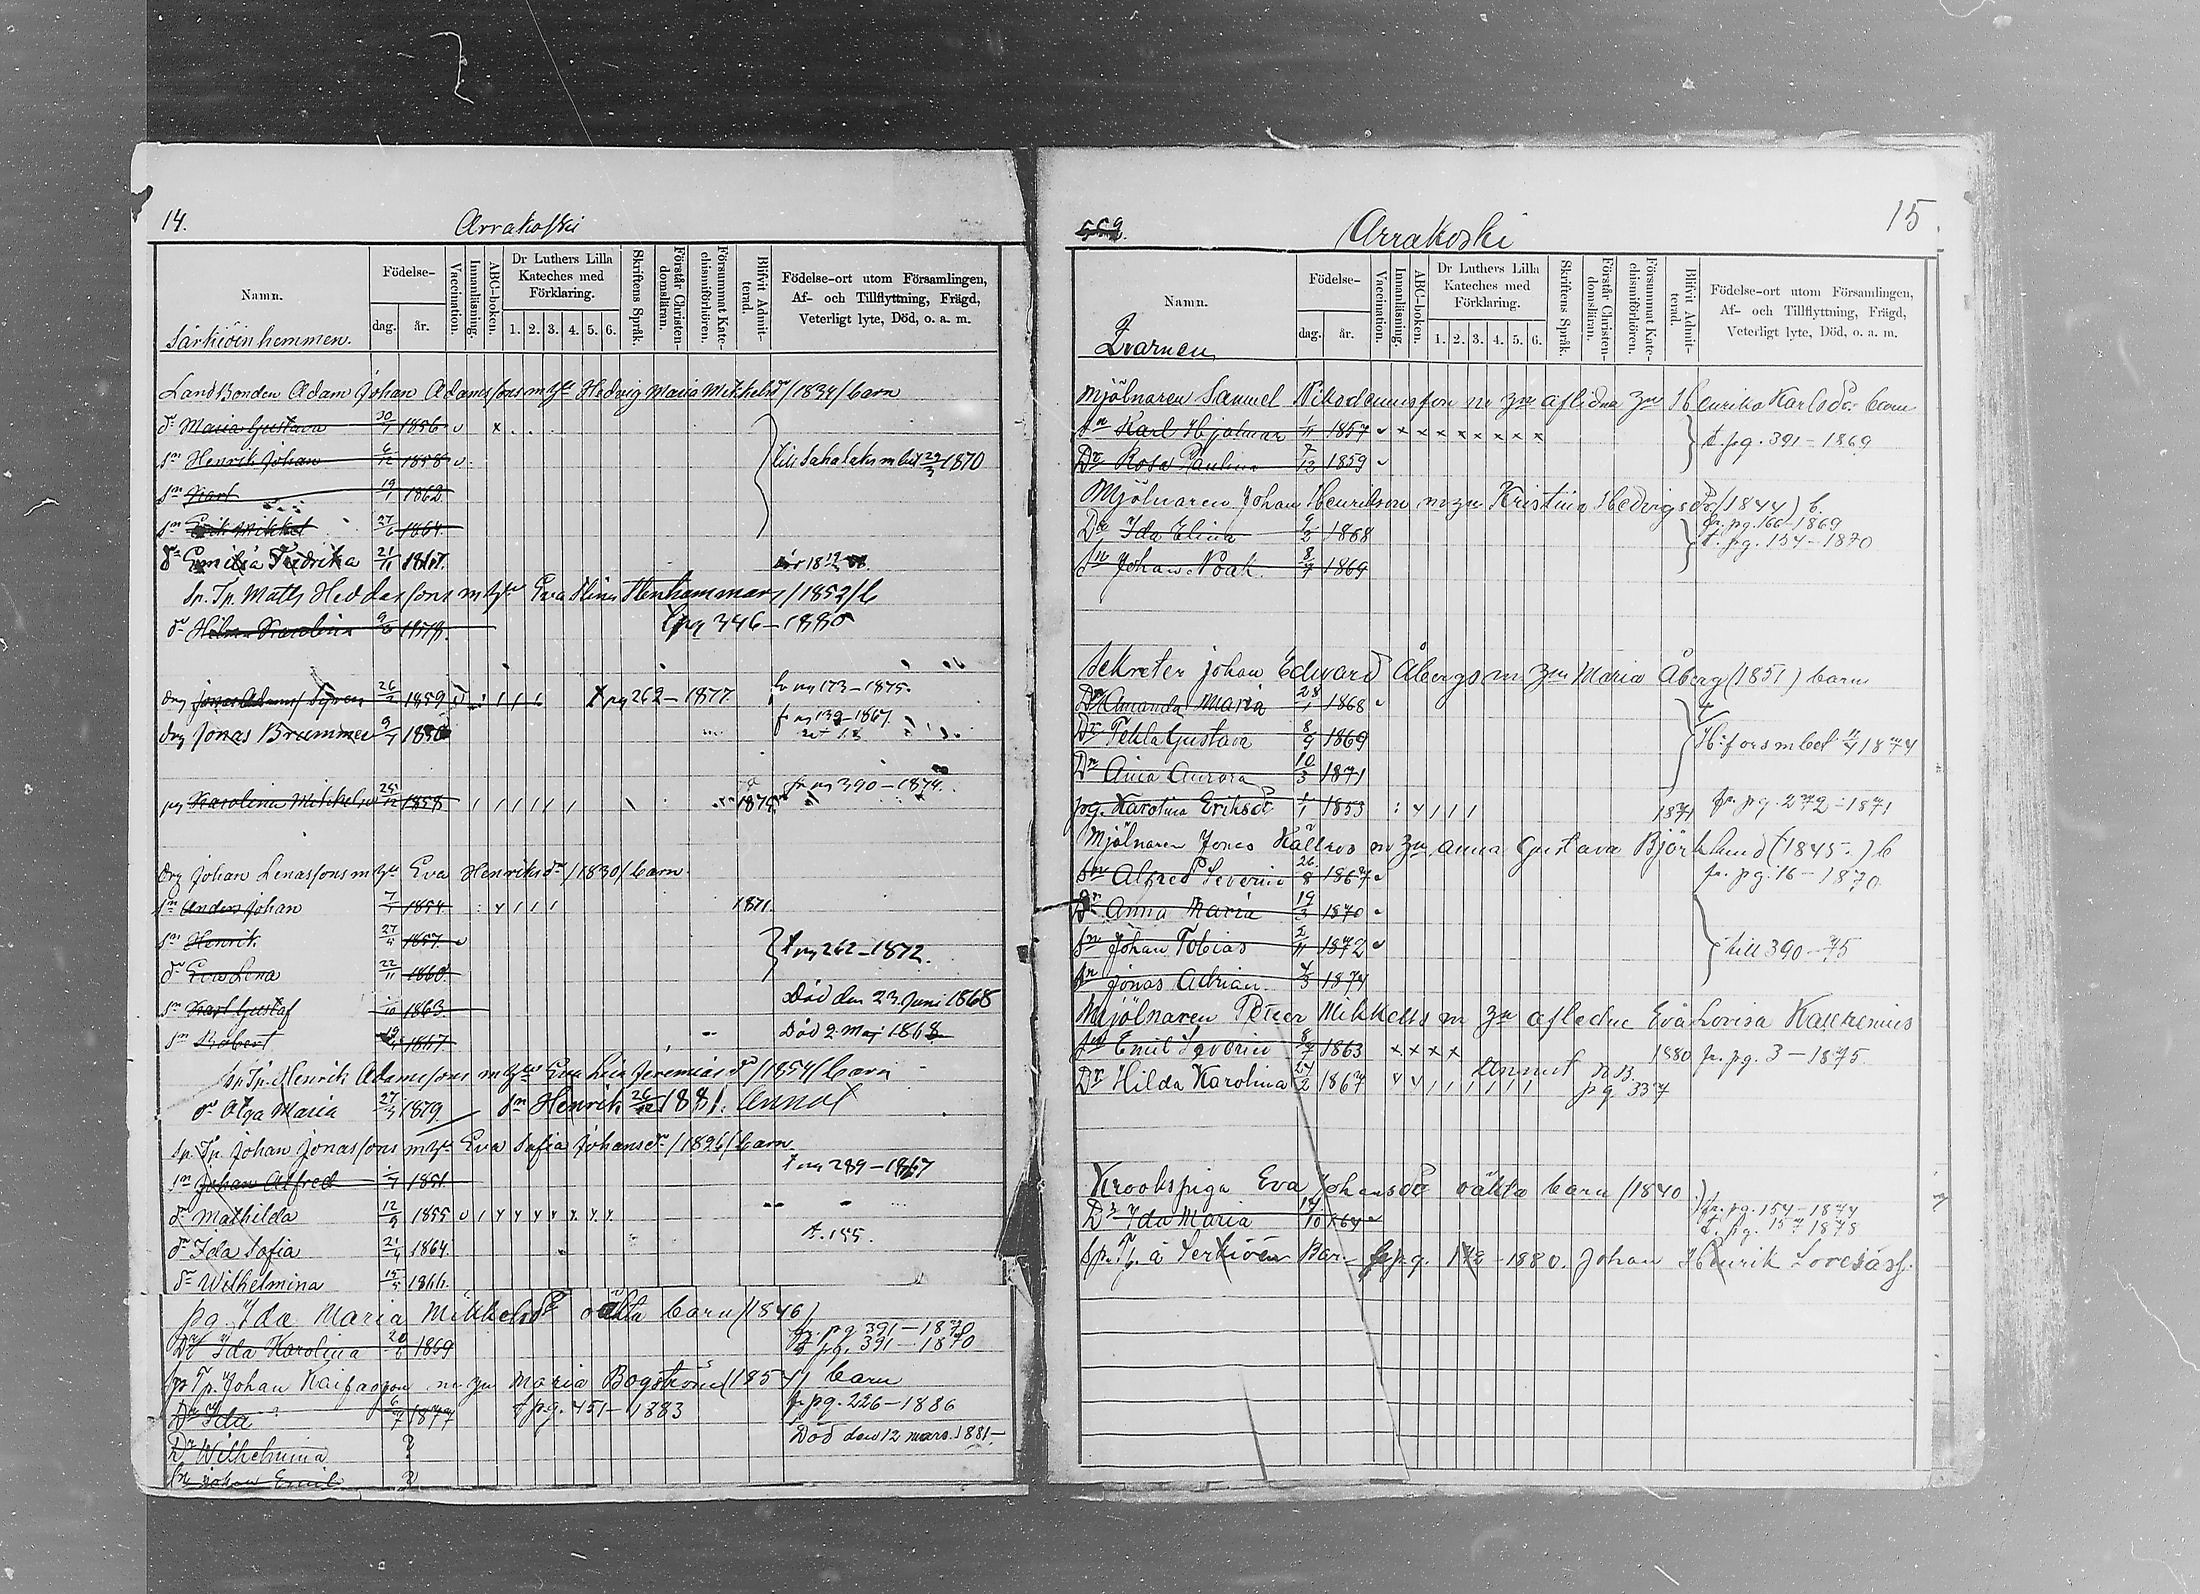 14.
Arrakoski
Namn.
Födelse-
dag.
år.
Vaccination.
Innanläsning.
ABC-boken.
Dr Luthers Lilla
Kateches med
Förklaring.
1. 2. 3. 4. 5. 6.
Skriftens Språk.
Förstår Christen-
domsläran.
Försummat Kate-
chismiförhören.
Blifvit Admit-
terad.
Födelse-ort utom Församlingen,
Af- och Tillflyttning, Frägd,
Veterligt lyte, Död, o. a. m.
Särkiöin hemmen.
Landbonden Adam Johan Adamssons m hu Hedvig Maria Mikkelsdr /1834/ barn
dr Maria Gustava 30/7 1856
sn Henrik Johan 6/12 1858 till Sahalaks m bet 29/3 1870
sn Karl 19/1 1862
sn Erik Mikkel 27/6 1864
dr Emilia Fredrika 21/11 1867
Sp. Tp. Matts m hu Eva Stina Stenhammar /1852/ b
dr Hilma Karolina 1878 t pg 346-1880
drg 26/2 1859 t pg 262-1877 fr pg 173-1875.
drg Jonas Brummer 9/7 fr pg 139-1867
pg Karolina Mikkelsd 25/12 1858 1874 fr pg 390-1874.
drg Johan Lenassons m hu Eva Henriksdr /1830/ barn
sn Anders Johan 7/1 1854 1871.
sn Henrik 27/4 1857 t pg 262-1872.
dr Eva Lena 22/11 1860
sn Karl Gustaf 1863 Död den 23 Juni 1868
sn Robert 1867 Död 2 Maj 1868
Sp. Tp. Henrik Adamssons m hu Eva Lisa Jeremiasdr /1854/ barn
dr Olga Maria 27/3 1879 sn Henrik 26/12 1881.
Sp. Tp. Johan Jonassons m hu Eva Sofia Johansdr /1826/ barn
sn Johan Alfred 1851 t pg 289-1867
dr Mathilda 12/9 1855
dr Ida Sofia 21/4 1864 t. 155.
dr Wilhelmina 15/5 1866
pg. Ida Maria Mikkelsdr oäkta barn (1846)
Dr Ida Karolina 1869 fr. pg. 391-1870
t pg. 391-1870
Sp Tp. Johan m hu Maria Bogström (1854) barn
Dr Ida 6/7 1877 t pg. 451-1883 fr pg. 226-1886
Dr Wilhelmina ? Död den 12 mars 1881-
Sn Johan Emil ?
15
Arrakoski
Namn.
Födelse-
dag.
år.
Vaccination.
Innanläsning.
ABC-boken.
Dr Luthers Lilla
Kateches med
Förklaring.
1. 2. 3. 4. 5. 6.
Skriftens Språk.
Förstår Christen-
domsläran.
Försummat Kate-
chismiförhören.
Blifvit Admit-
terad.
Födelse-ort utom Församlingen,
Af- och Tillflyttning, Frägd,
Veterligt lyte, Död, o. a. m.
Qvarnen
Mjölnaren Samuel Nikodemusson m hu aflidna hu Henrika Karlsdr barn
Sn Karl Hjalmar 1857 t. pg. 391-1869
Dr Rosa Paulina 1859
Mjölnaren Johan Henrikson m hu Kristina Hedvigsdr (1844) b.
Dr Ida Elina 9/2 1868 fr. pg. 166-1869
t. pg. 154-1870
Sn Johan Noak. 8/7 1869
Sekreter Johan Edward Åbergs m hu Maria Åberg (1851) barn
Dr Amanda Maria 28/1 1868
Dr Tekla Gustava 8/9 1869 H:fors m bet 11/4 1874
Dr Aina Aurora 10/3 1871
pg. Karolina Eriksdr 1/1 1853 1871 fr. pg. 272-1871
Mjölnaren Jonas Källros m hu Anna Gustava Björklund (1845.) b
Sn Alfred Severin 26/8 1867 fr. pg. 16-1870
Dr Anna Maria 19/3 1870
Sn Johan Tobias 2/11 1872 till 390-75
Sn Jonas Adrian. 1874
Mjölnaren Petter Mikkelss m hu afledne Eva Lovisa
Sn Emil Severin 8/7 1863 1880 fr. pg. 3-1875.
Dr Hilda Karolina 27/2 1867 NB. pg. 337
Krookspiga Eva Johansdr oäkta barn (1840)
Dr Ida Maria 64 fr. pg. 154-1874
t. pg. 157 1878
Sp. Tp. à Serkiöen Bar. fr pg. 172-1880. Johan Henrik